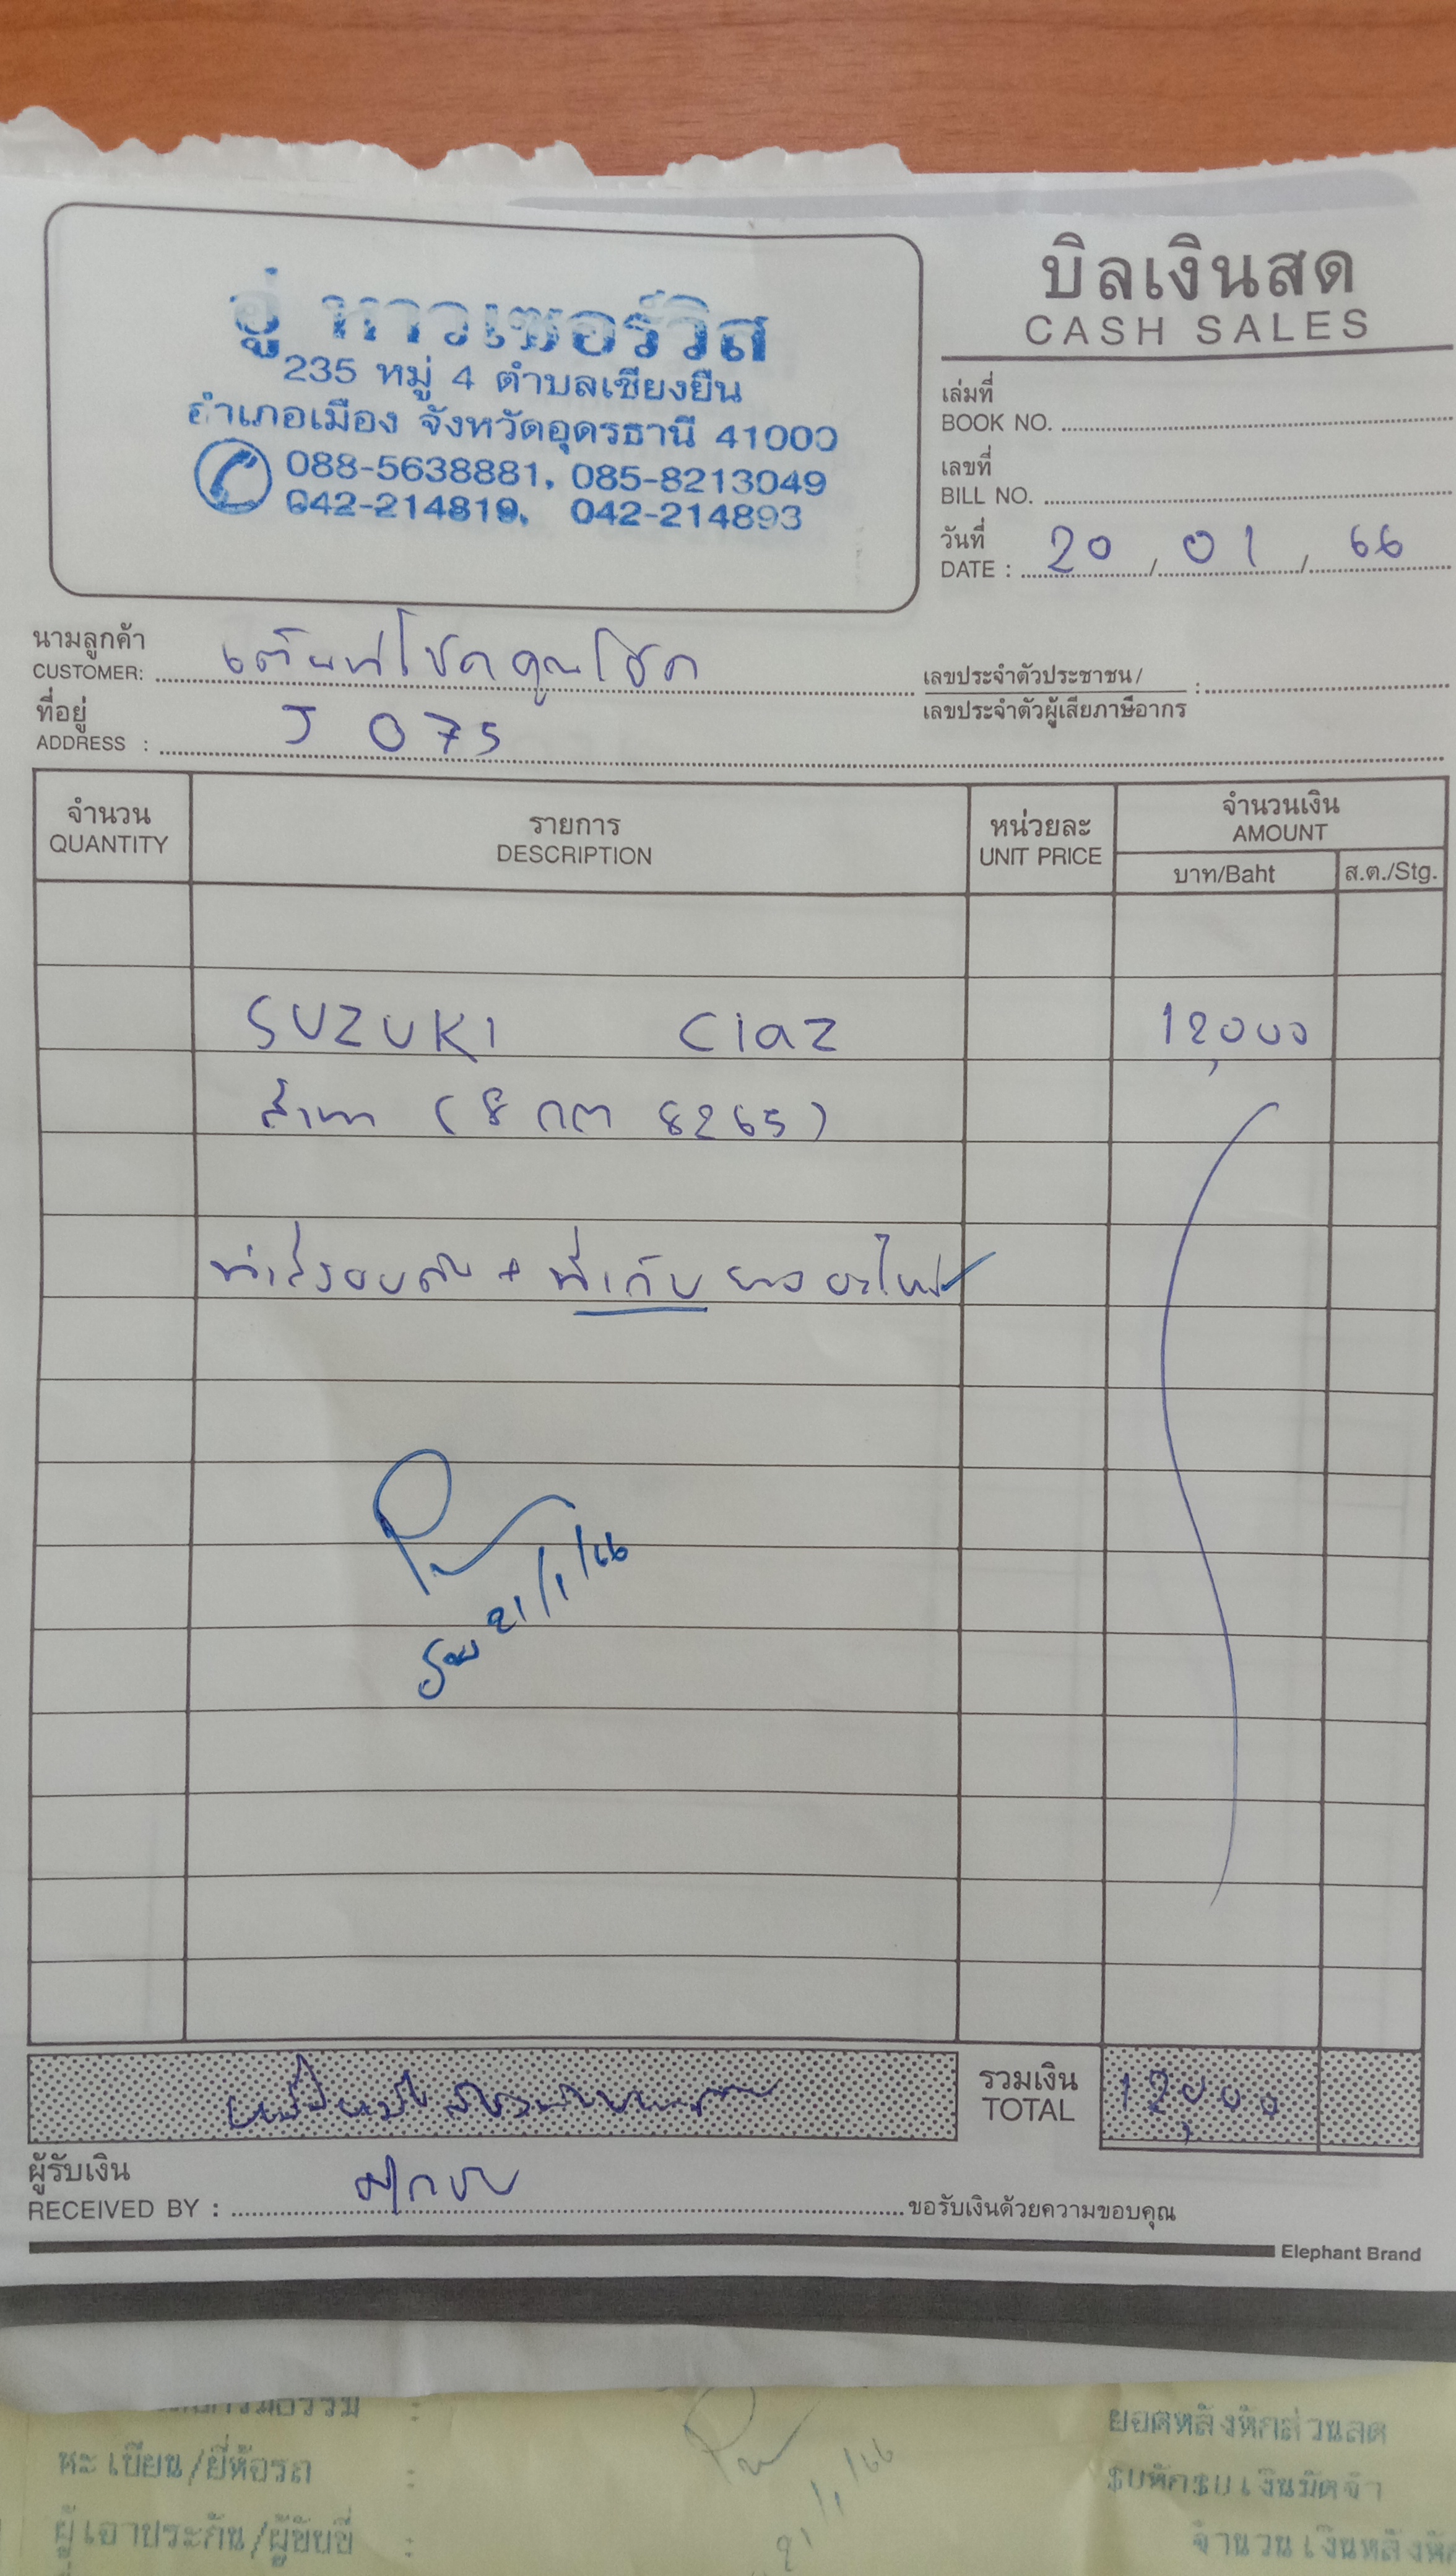 อู่ หาวเซอร์วิส
235 หมู่ 4 ตำบลเชียงยืน
อำเภอเมือง จังหวัดอุดรธานี 41000
088-5638881, 085-8213049
042-214819, 042-214893
บิลเงินสด
CASH SALES
เล่มที่
BOOK NO.
เลขที่
BILL NO.
วันที่
DATE : 20 / 01 / 66
นามลูกค้า
CUSTOMER: เต็นท์โชคคูณโชค
เลขประจำตัวประชาชน/
เลขประจำตัวผู้เสียภาษีอากร :
ที่อยู่
ADDRESS : J 075
จำนวน
QUANTITY
รายการ
DESCRIPTION
หน่วยละ
UNIT PRICE
จำนวนเงิน
AMOUNT
บาท/Baht
ส.ต./Stg.
SUZUKI Ciaz 12,000
สีเทา (8 กต 8265)
ทำสีรอบคัน + ที่เก็บ
21/1/66
รวมเงิน
TOTAL 12,000
ผู้รับเงิน
RECEIVED BY :
ขอรับเงินด้วยความขอบคุณ
Elephant Brand
ยอดหลังหักส่วนลด
ทะเบียน/ยี่ห้อรถ :
เงินมัดจำ
ผู้เอาประกัน/ผู้ขับขี่ :
21/1/66